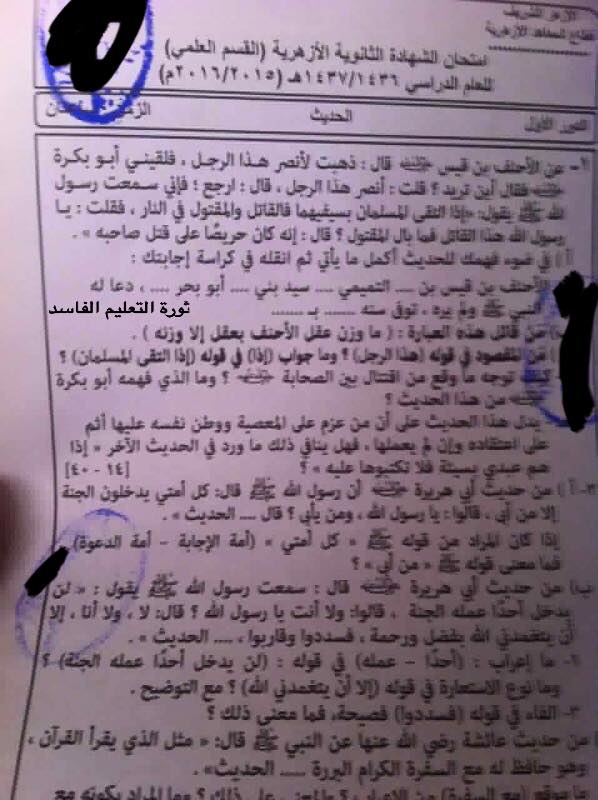 الأزهر الشريف
قطاع المعاهد الأزهرية
امتحان الشهادة الثانوية الأزهرية (القسم العلمي)
للعام الدراسي ١٤٣٧/١٤٣٦هـ (٢٠١٦/٢٠١٥م)
الدور الأول
الحديث
الزمن:
١- عن الأحنف بن قيس ﵁ قال : ذهبت لأنصر هذا الرجل ، فلقيني أبو بكرة
﵁ فقال أين تريد ؟ قلت : أنصر هذا الرجل ، قال : ارجع ؛ فإني سمعت رسول
الله ﷺ يقول: «إذا التقى المسلمان بسيفيهما فالقاتل والمقتول في النار ، فقلت : يا
رسول الله هذا القاتل فما بال المقتول ؟ قال : إنه كان حريصًا على قتل صاحبه » .
أ ) في ضوء فهمك للحديث أكمل ما يأتي ثم انقله في كراسة إجابتك :
الأحنف بن قيس بن .... التميمي .... سيد بني .... أبو بحر .... ، دعا له
النبي ﷺ ولم يره ، توفى سنة ........ بـ ........
ثورة التعليم الفاسد
من قائل هذه العبارة : ( ما وزن عقل الأحنف بعقل إلا وزنه ) .
من المقصود في قوله (هذا الرجل) ؟ وما جواب (إذا) في قوله (إذا التقى المسلمان) ؟
كيف توجه ما وقع من اقتتال بين الصحابة ؟ وما الذي فهمه أبو بكرة
﵁ من هذا الحديث ؟
يدل هذا الحديث على أن من عزم على المعصية ووطن نفسه عليها أثم
على اعتقاده وإن لم يعملها ، فهل ينافي ذلك ما ورد في الحديث الآخر « إذا
هم عبدي بسيئة فلا تكتبوها عليه » ؟ [١٤ - ٤٠]
٢- أ ) من حديث أبي هريرة ﵁ أن رسول الله ﷺ قال: كل أمتي يدخلون الجنة
إلا من أبى ، قالوا : يا رسول الله ، ومن يأبى ؟ قال .... الحديث » .
إذا كان المراد من قوله ﷺ « كل أمتي » (أمة الإجابة - أمة الدعوة) ،
فما معنى قوله ﷺ « من أبى » ؟
ب) من حديث أبي هريرة ﵁ قال : سمعت رسول الله ﷺ يقول : « لن
يدخل أحدًا عمله الجنة ، قالوا: ولا أنت يا رسول الله ؟ قال: لا ، ولا أنا ، إلا
أن يتغمدني الله بفضل ورحمة ، فسددوا وقاربوا ، .... الحديث » .
١- ما إعراب : (أحدًا - عمله) في قوله : (لن يدخل أحدًا عمله الجنة) ؟
وما نوع الاستعارة في قوله (إلا أن يتغمدني الله) ؟ مع التوضيح .
٣- الفاء في قوله (فسددوا) فصيحة، فما معنى ذلك ؟
من حديث عائشة رضي الله عنها عن النبي ﷺ قال: « مثل الذي يقرأ القرآن ،
وهو حافظ له مع السفرة الكرام البررة .... الحديث» .
ما موقع (مع السفرة) من الإعراب ؟ وما المراد بكونه مع